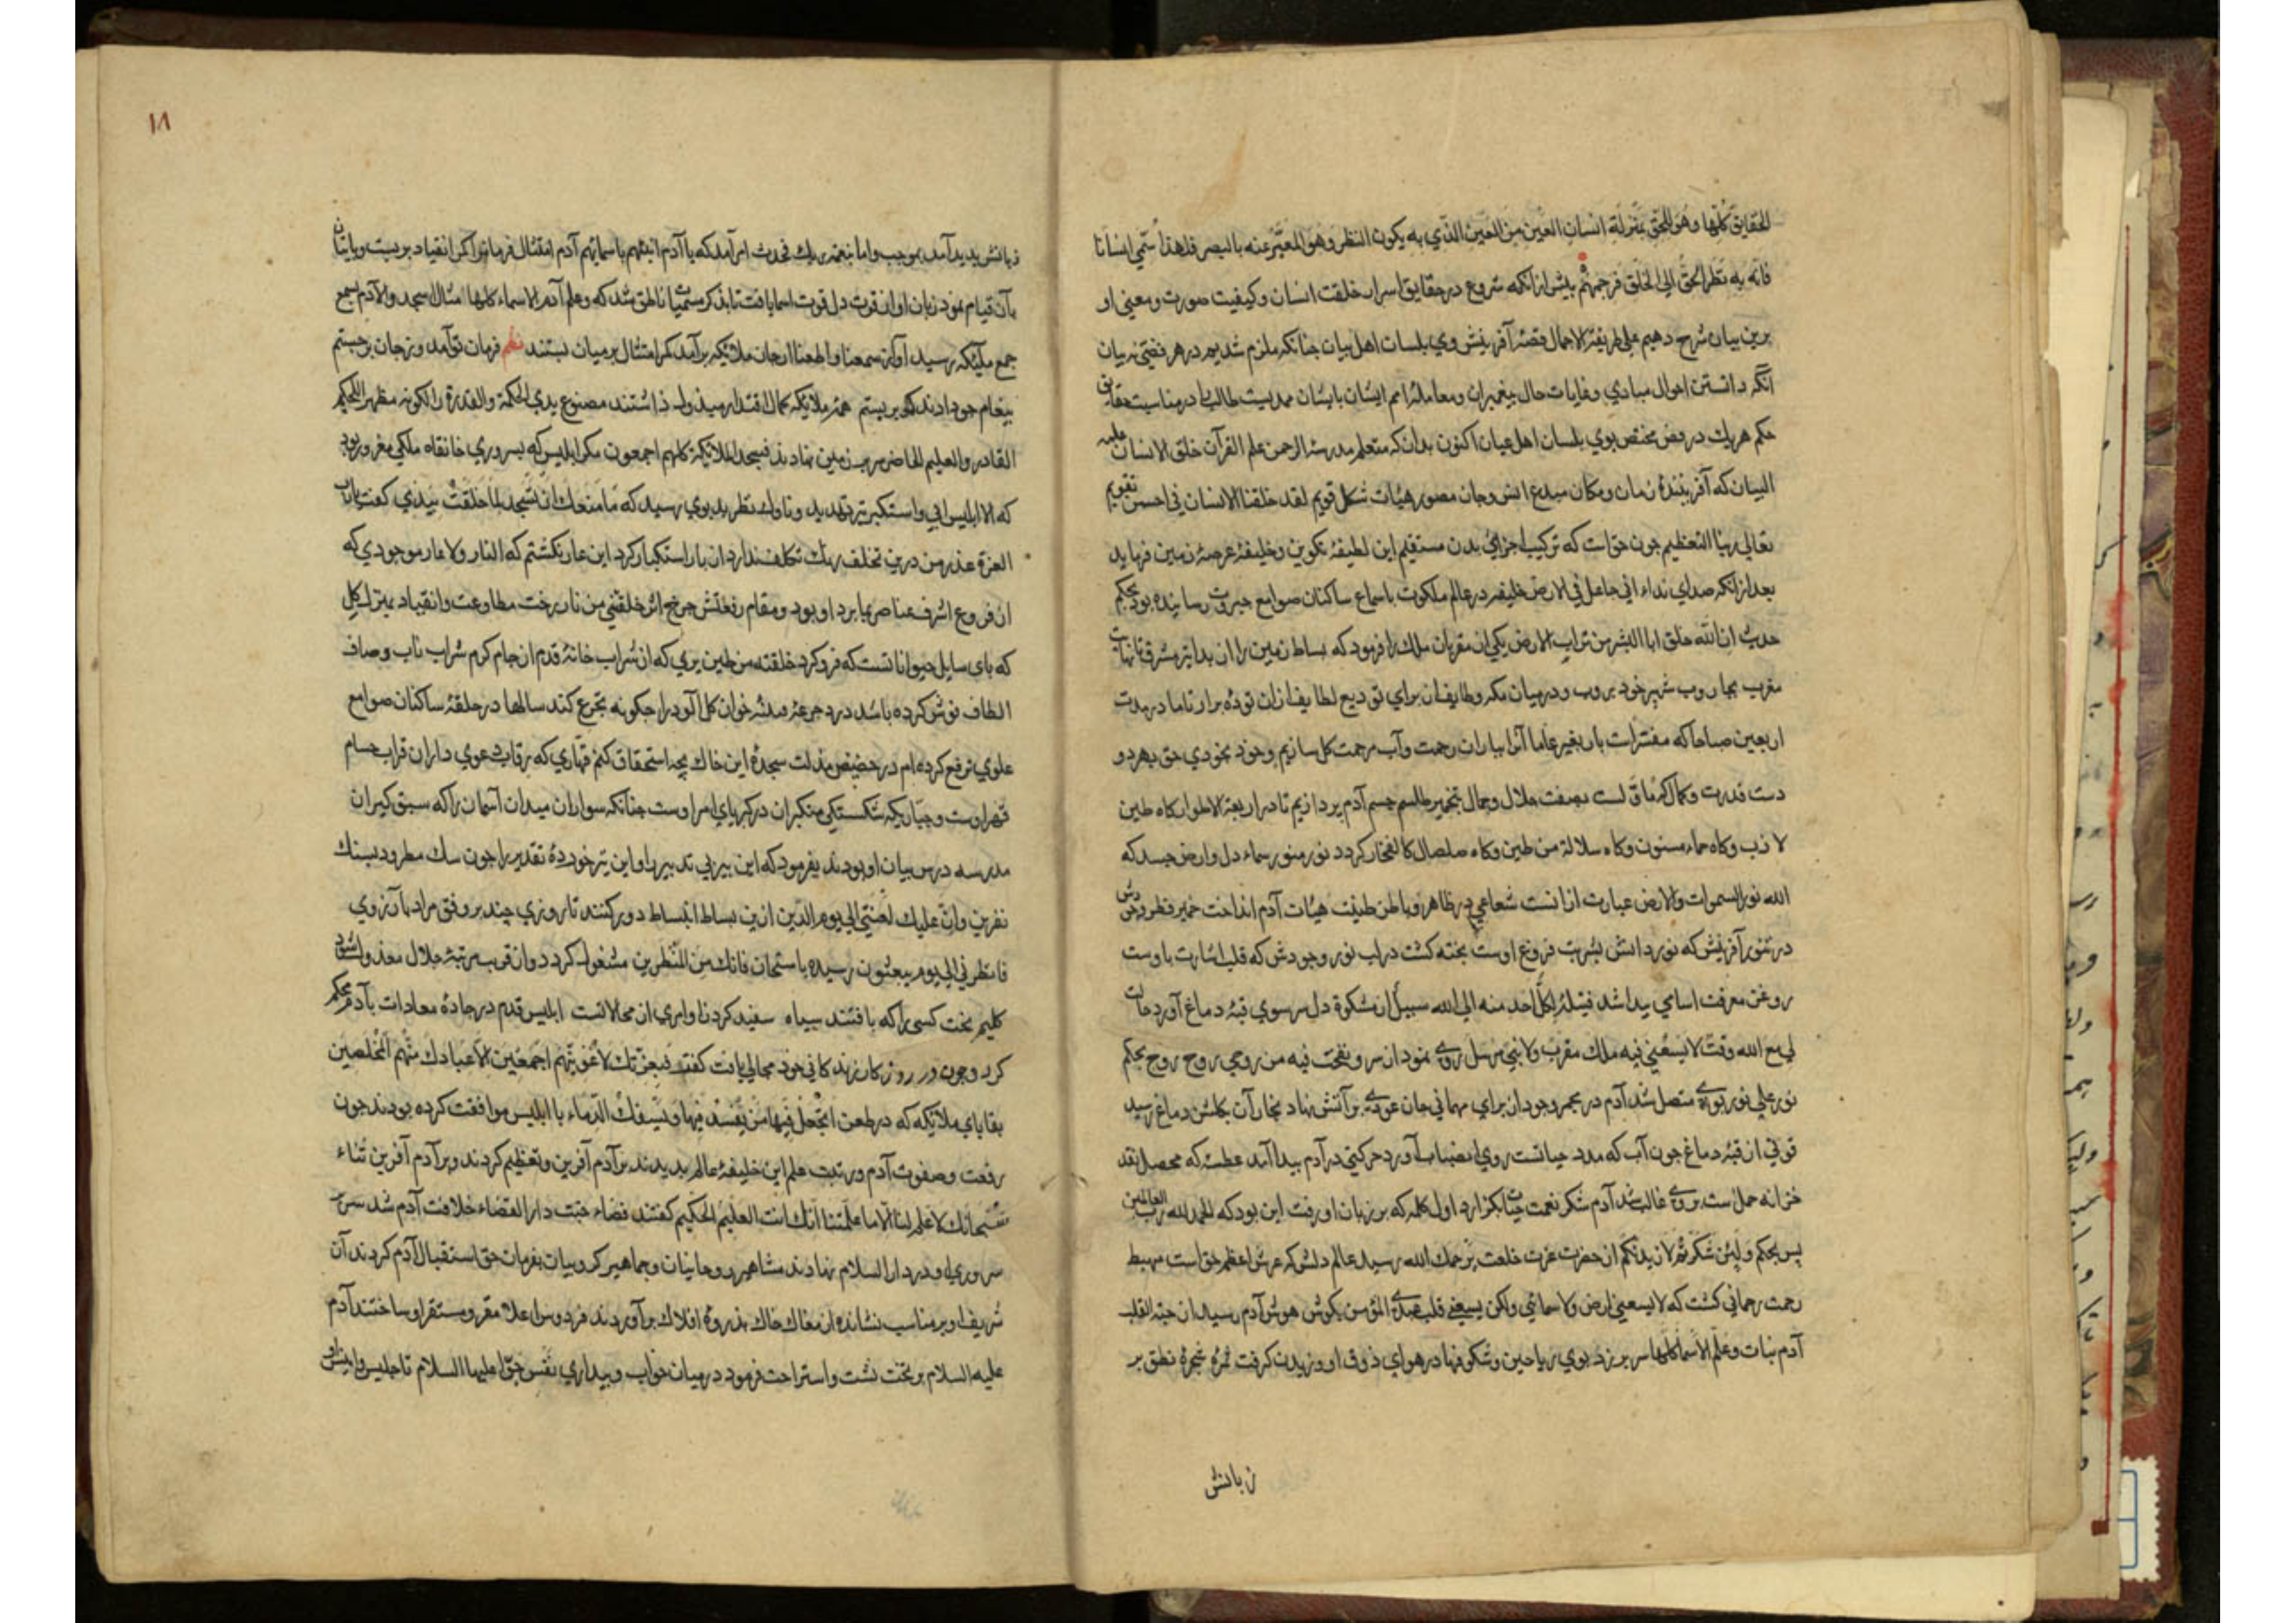 الحقایق کلها وهو للحق بمنزلة انسان العین من العین الذی به یکون النظر وهو المعبر عنه بالبصر فلهذا سمی انسانا
فانه به نظر الحق الی الخلق فرحمهم پیش ازانکه شروع در حقایق اسرار خلقت انسان وکیفیت صورت ومعنی او
برین بیان شرح دهیم علی طریقة الاجمال قصهٔ آفرینش وی بلسان اهل بیان جنانکه ملزم شدیم در هر فصی بیان
آنکه دانستن احوال مبادی وغایات حال پیغمبران ومعاملهٔ امم ایشان بایشان ممد است طالب را در مناسبت حقایق
حکم هریک در فص مختص بوی بلسان اهل عیان اکنون بدان که متعلم مدرسهٔ الرحمن علم القرآن خلق الانسان علمه
البیان که آفرینندهٔ زمان ومکان مبدع انس وجان مصور هیئات شکل قویم لقد خلقنا الانسان فی احسن تقویم
تعالی ربنا التعظیم جون خواست که ترکیب اجزای بدن مستقیم این لطیفهٔ تکوین وخلیفهٔ عرصهٔ زمین فرماید
بعد ازانکه صدای نداء انی جاعل فی الارض خلیفه در عالم ملکوت باسماع ساکنان صوامع جبروت رسانیده بود بحکم
حدیث ان الله خلق ابا البشر من تراب الارض یکی از مقربان ملک را فرمود که بساط زمین را از بدایت مشرق تا نهایت
مغرب بجاروب شهپر خود بروب ودرمیان مکه وطایف از برای تودیع لطایف ازان تودهٔ برار تا ما در مدت
اربعین صباحا که مفسرات باربعین عاما آنرا بباران رحمت وآب مرحمت کل سازیم وخود بخودی حق بهردو
دست قدرت وکمال که ما بصفت جلال وجمال بتخمیر طلسم جسم آدم پردازیم تا در اربعة الاطوار کاه طین
لازب وکاه حماء مسنون وکاه سلالة من طین وکاه صلصال کالفخار کردد نور منور سماء دل وارض جسد که
الله نور السموات والارض عبارت ازانست شعاعی در ظاهر وباطن طینت هیئات آدم انداخت خمیر فطرت وجودش
در تنور آفرینش که نور دانش بشریت فروغ اوست پخته کشت دراب نور وجودش که قلب اشارت باوست
روغن معرفت اسامی پیدا شد فتیلهٔ لکل احد منه الی الله سبیل از مشکوة دل سر سوی قبهٔ دماغ آورد حالت
لی مع الله وقت لا یسعنی فیه ملک مقرب ولا نبی مرسل روی نمود از سر ونفخت فیه من روحی روح روح بحکم
نور علی نور بوی متصل شد آدم در مجمر وجود از برای مهمانی جان عودی بر آتش نهاد بخار آن بکلشن دماغ رسید
قوتی از قبهٔ دماغ جون آب که مدد حیاتست روی بنصباب آورد حرکتی در آدم پیدا آمد عطسه که محصل نقد
خزانه حمل است بروی غالب شد آدم شکر نعمت حیات بکزارد اول کلمه که بر زبان او رفت این بود که الحمد لله رب العالمین
پس بحکم ولئن شکرتم لازیدنکم از حضرت عزت خلعت یرحمک الله رسید عالم دلش که عرش اعظم حق است مهبط
رحمت رحمانی کشت که لا یسعنی ارض ولا سمائی ولکن یسعنی قلب عبدی المؤمن بکوش هوش آدم رسید از جنة القلب
آدم نبات وعلم الاسماء کلها سر برزد بوی ریاحین وشکوفها در هوای ذوق او وزیدن کرفت ثمرهٔ شجرهٔ نطق بر
زبانش
١٨
زبانش پدید آمد بموجب واما بنعمة ربک فحدث امر آمد که یا آدم انبئهم باسمائهم آدم امتثال فرمانرا کمر انقیاد بربست وباتیان
بآن قیام نمود زبان او از قوت دل قوت اسما یافت تا بذکر مسمیات ناطق شد که وعلم آدم الاسماء کلها مثال اسجدوا لآدم بسمع
جمع ملئکه رسید آواز سمعنا واطعنا از جان ملائکه برآمد کمر امتثال بر میان ببستند نظم فرمان تو آمد وزجان برجستم
پیغام جو دادند کمر بربستم همه ملایکه کمال اقتدار مصنوع یدی الحکمة والقدرة را لکونه مظهرا للحکیم
القادر والعلیم الحاضر سر بر زمین نهادند فسجد الملائکة کلهم اجمعون مکر ابلیس که بسروری خانقاه ملکی مغرور بود
که الا ابلیس ابی واستکبر تیر تهدید وناوک نظر بد بوی رسید که ما منعک ان تسجد لما خلقت بیدی کفت یا رب
العزة عذر من درین تخلف استکبار کرد این عار نکشتم که النار ولا عار موجودی که
از فروع اشرف عناصر بود ومقام رفعتش جرخ اثیر خلقتنی من نار رخت مطاوعت وانقیاد بمنزل کل
که پای سایل حیواناتست که فرو کرد خلقته من طین یری که از شراب خانهٔ قدم از جام کرم شراب ناب وصاف
الطاف نوش کرده باشد درد جرعهٔ خوان کل آلود را جکونه تجرع کند سالها در حلقهٔ ساکنان صوامع
علوی ترفع کرده ام در حضیض مذلت سجدهٔ این خاک بجه استحقاق کنم قهاری که رقاب دعوی داران قراب حسام
قهر اوست وجباری که شکستکی متکبران در کبریای امر اوست جنانکه سواران میدان آسمان را که سبق کیران
مدرسه درس بیان او بودند بفرمود که این پیر بی تدبیر را واین تیر خوردهٔ تقدیر را جون سک مطرود بسنک
نفرین وان علیک لعنتی الی یوم الدین ازین بساط انبساط دور کنند تا روزی چند بر وفق مراد بآرزوی
فانظرنی الی یوم یبعثون رسیده باستحان فانک من المنظرین مشغول کردد واز قرب مرتبهٔ جلال معذول شود
کلیم بخت کسی را که بافتند سیاه سفید کردن اوامری از محالاتست ابلیس قدم در جادهٔ معادات با آدم محکم
کرد وجون در روزکار زندکانی خود مجالی یافت کفت فبعزتک لاغوینهم اجمعین الا عبادک منهم المخلصین
بقایای ملائکه که در طعن اتجعل فیها من یفسد فیها ویسفک الدماء با ابلیس موافقت کرده بودند جون
رفعت وصفوت آدم ورتبت علم این خلیفهٔ عالم بدیدند بر آدم آفرین وتعظیم کردند وبر آدم آفرین ثناء
سبحانک لا علم لنا الا ما علمتنا انک انت العلیم الحکیم کفتند فضاء جنت دار القضاء خلافت آدم شد سریر
سروری او در دار السلام نهادند مشاهیر روحانیان وجماهیر کروبیان بفرمان حق استقبال آدم کردند آن
شریف را بر مناسب نشانده از مغاک خاک بذروهٔ افلاک برآوردند فردوس اعلا مقر ومستقر او ساختند آدم
علیه السلام بر تخت نشست واستراحت فرمود درمیان خواب وبیداری نفس حوا علیها السلام تا جلیس وانیس او